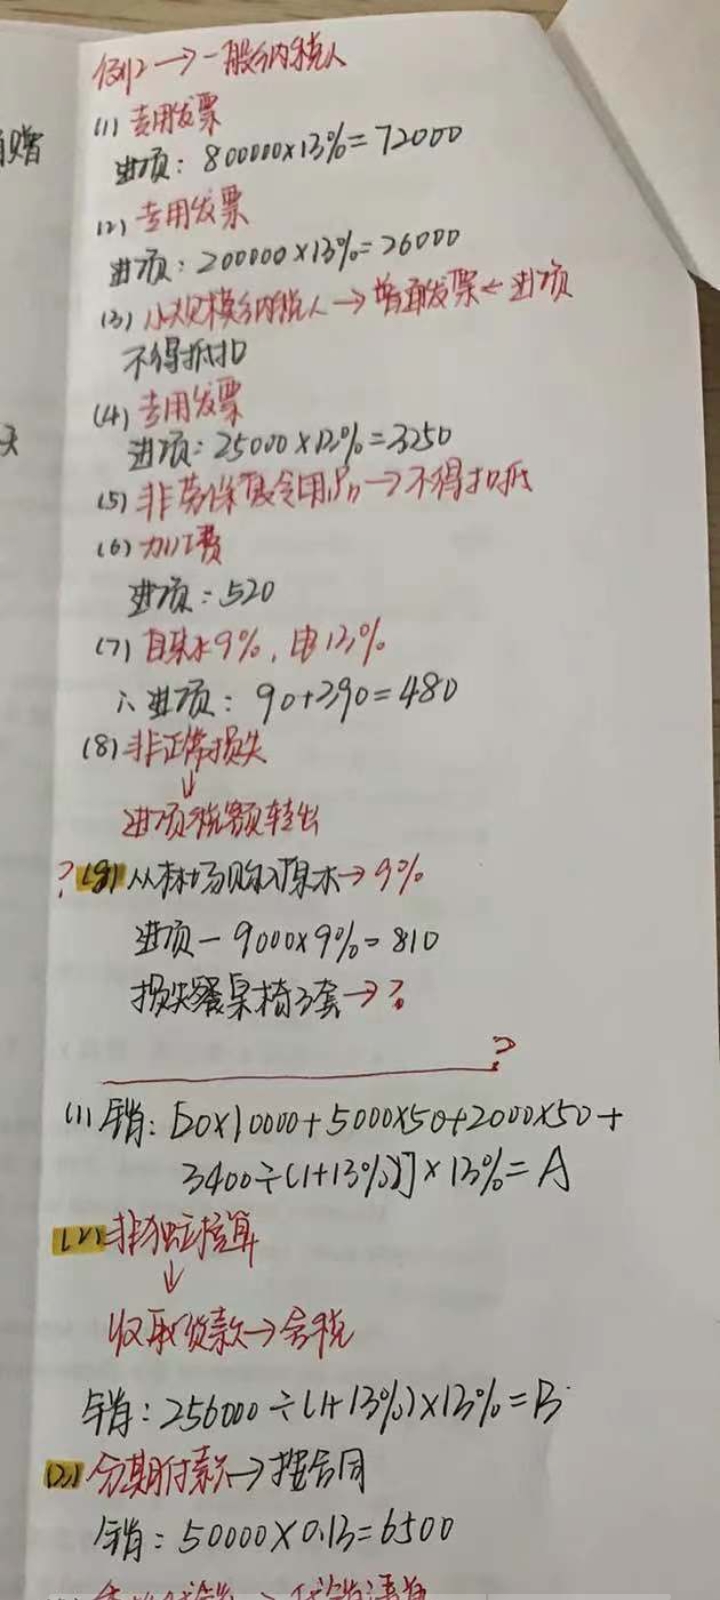 例2→一般纳税人
(1) 专用发票
进项：800000×13%=72000
(2) 专用发票
进项：200000×13%=26000
(3) 小规模纳税人→普通发票←进项
不得抵扣
(4) 专用发票
进项：25000×13%=3250
(5) 非劳保用品→不得扣抵
(6) 加工费
进项：520
(7) 自来水9%，电13%
∴进项：90+390=480
(8) 非正常损失
↓
进项税额转出
?(9) 从林场购入原木→9%
进项—9000×9%=810
损失餐桌椅3套→?
?
(1) 销：[20×10000+5000×50+2000×50+
3400÷(1+13%)]×13%=A
(2) 非独立核算
↓
收取货款→含税
销：256000÷(1+13%)×13%=B
(3) 分期付款→按合同
销：50000×0.13=6500